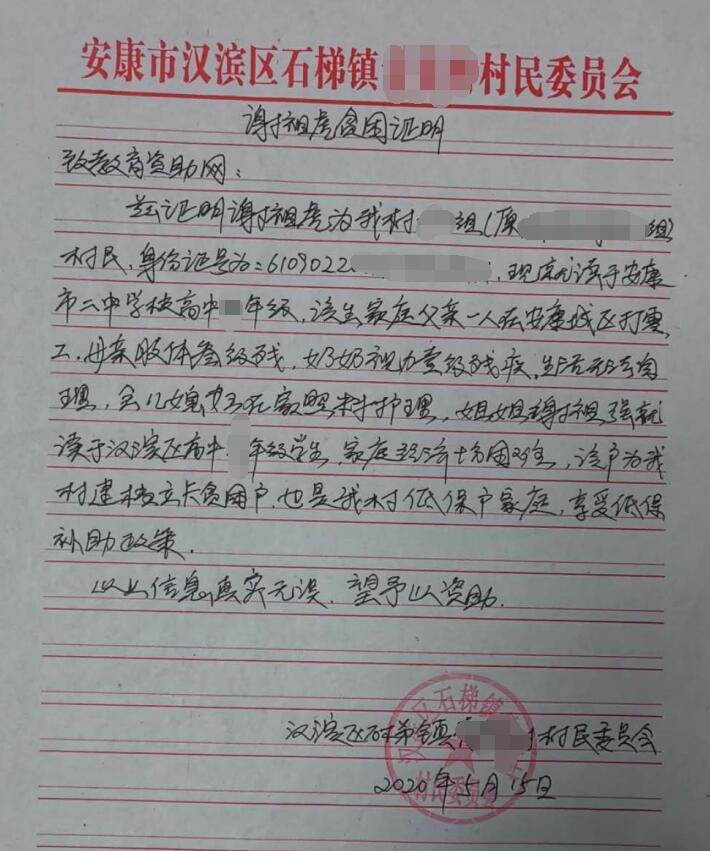 安康市汉滨区石梯镇 村民委员会
谭祖虎贫困证明
致教育资助网：
兹证明谭祖虎为我村 组(原 组)
村民,身份证号为:6109022 ,现就读于安康
市二中学校高中 年级,该生家庭父亲一人在安康城区打零
工,母亲肢体叁级残,奶奶视力壹级残疾,生活无法自
理,全儿媳妇在家照料护理,姐姐谭祖强就
读于汉滨区高中 年级学生,家庭经济十分困难,该户为我
村建档立卡贫困户,也是我村低保户家庭,享受低保
补助政策.
以上信息真实无误,望予以资助.
汉滨区石梯镇 村民委员会
2020年5月15日